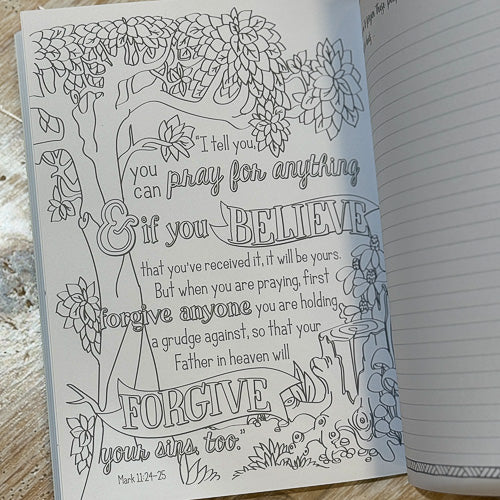 "I tell you,
you can pray for anything
& if you BELIEVE
that you've received it, it will be yours.
But when you are praying, first
forgive anyone you are holding
a grudge against, so that your
Father in heaven will
FORGIVE
your sins, too."
Mark 11:24–25